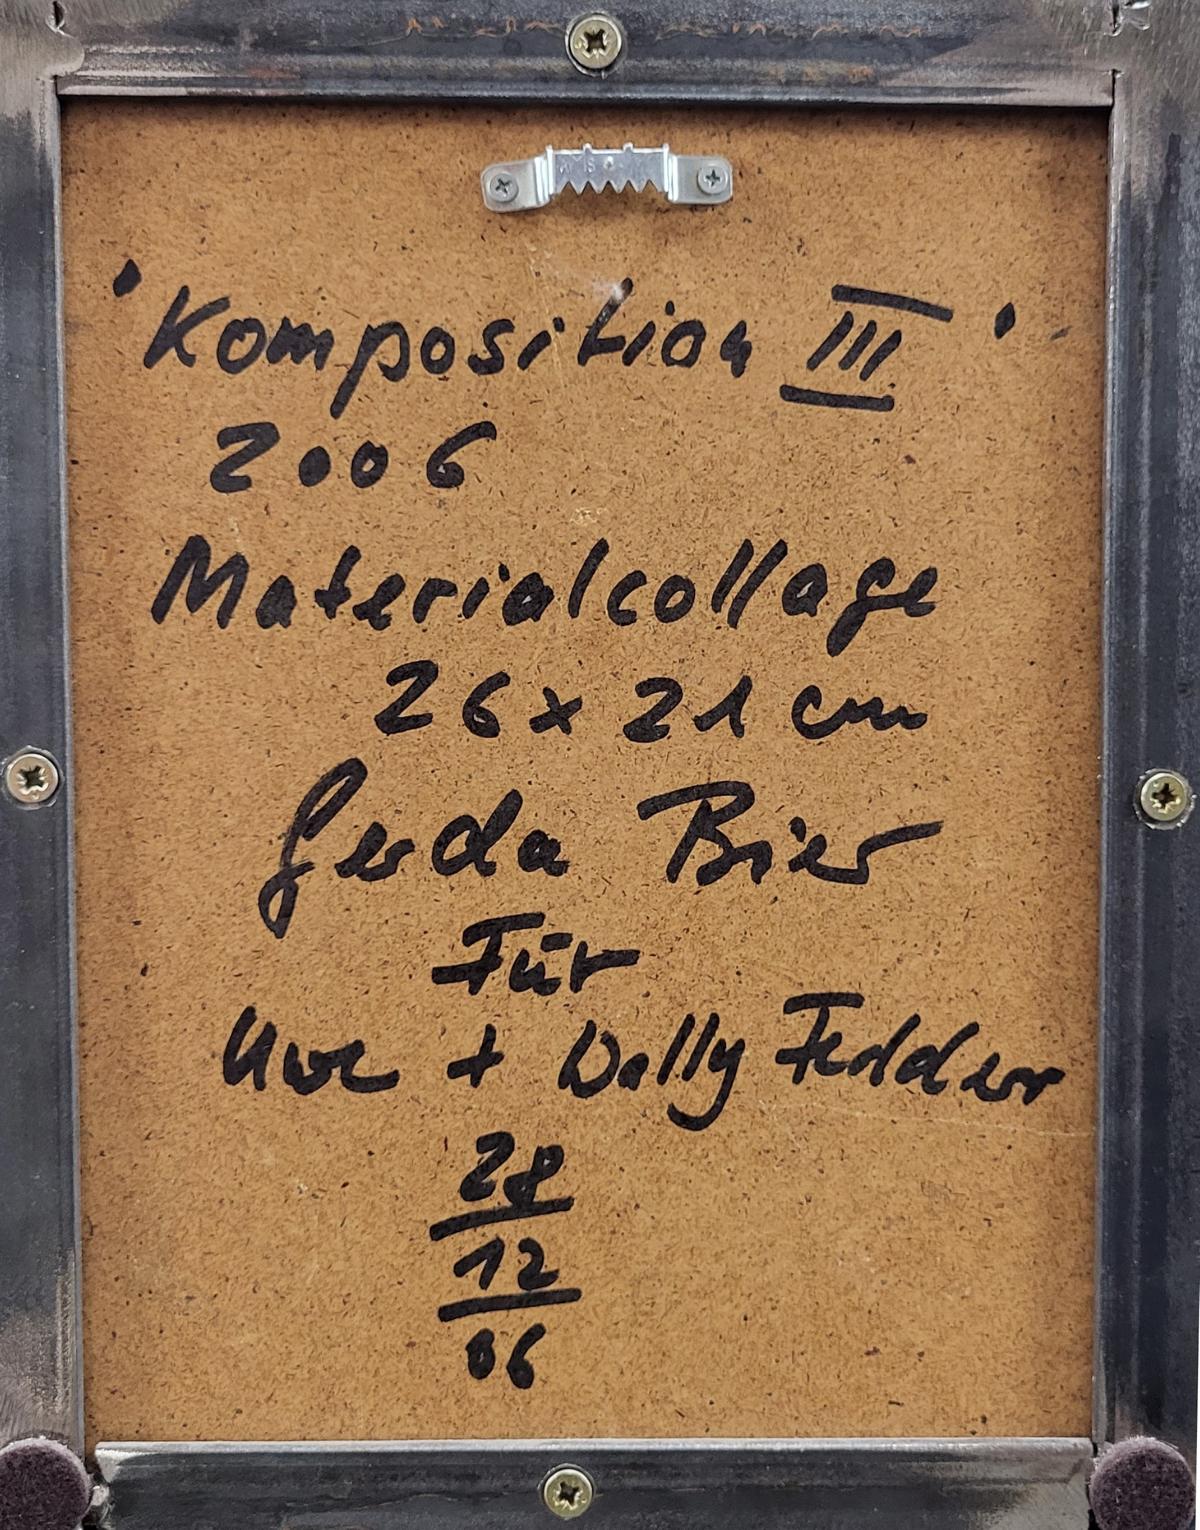 'Komposition III'
2006
Materialcollage
26 x 21 cm
Gerda Bier
Für
Uwe + Dolly
28
12
06